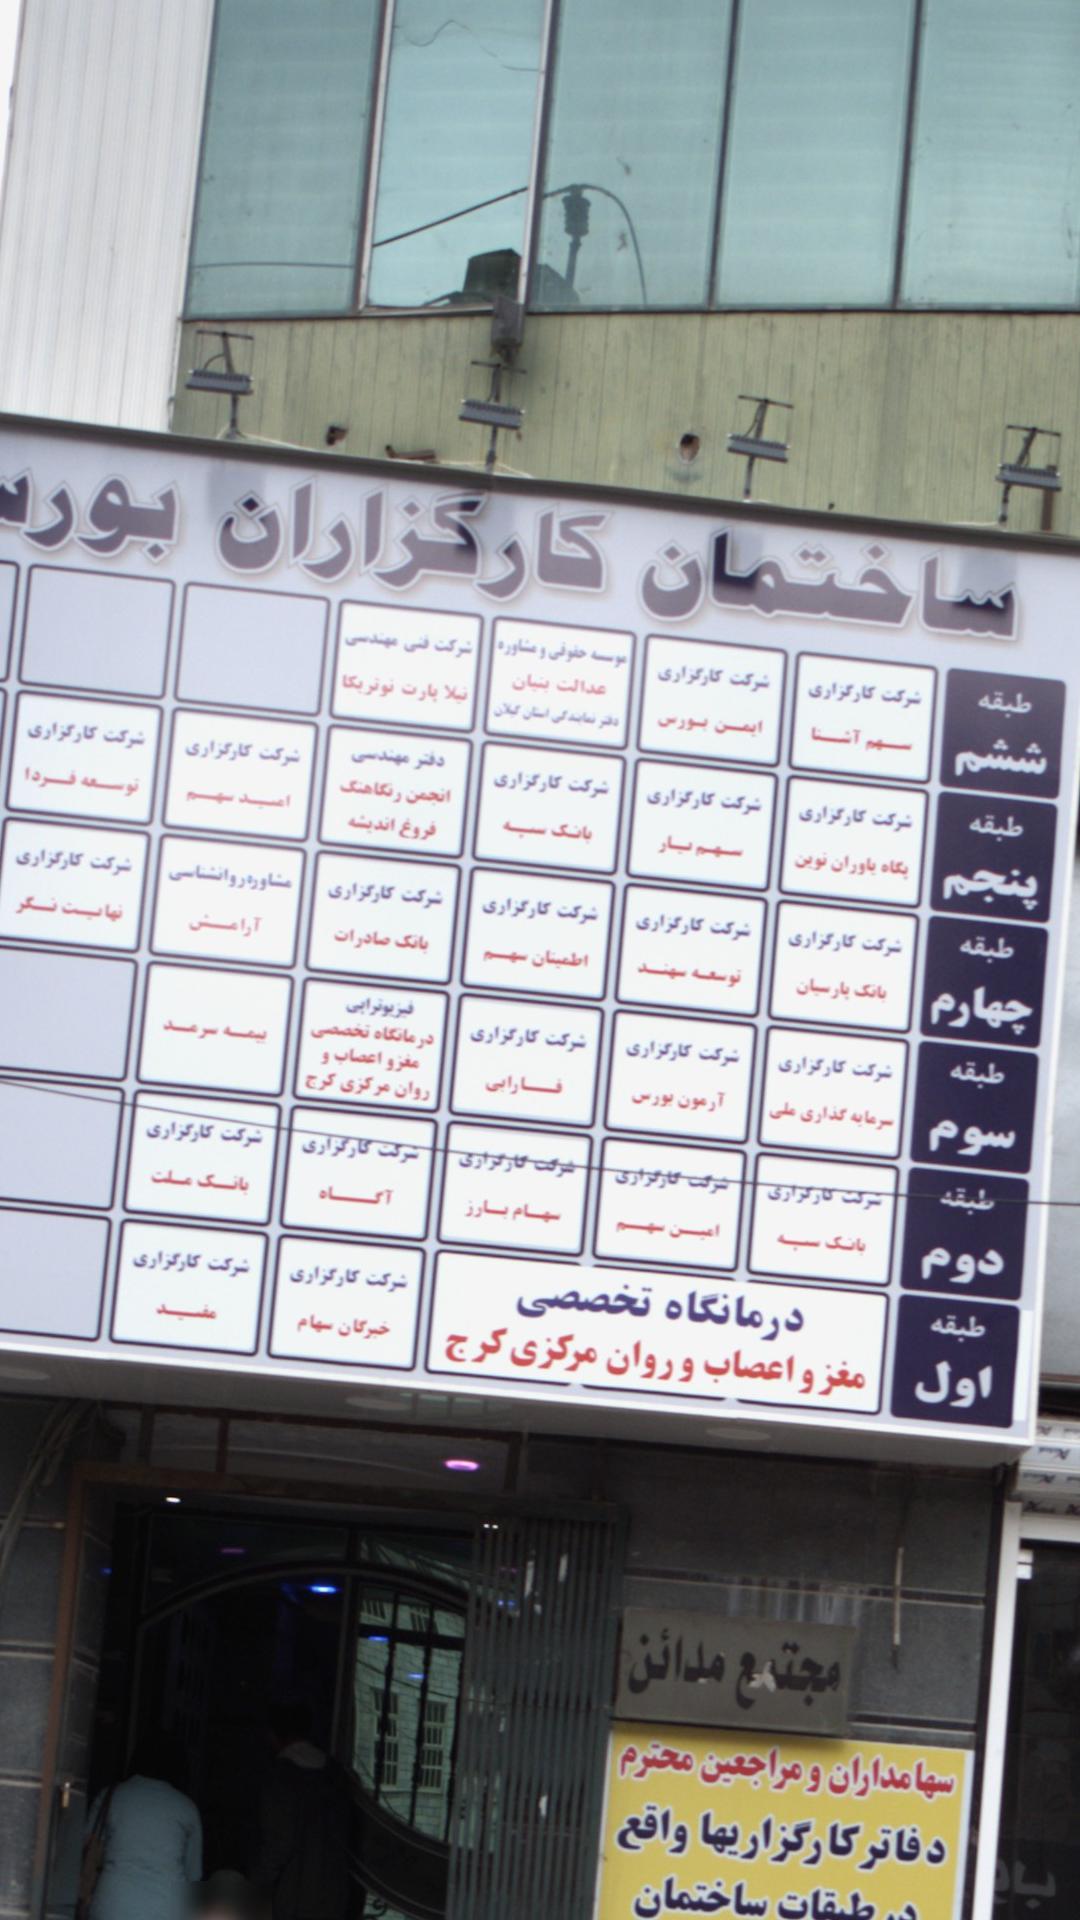 ساختمان کارگزاران بورس
طبقه
ششم
شرکت کارگزاری
سهم آشنا
شرکت کارگزاری
ایمن بورس
موسسه حقوقی و مشاوره
عدالت بنیان
دفتر نمایندگی استان گیلان
شرکت فنی مهندسی
نیلا پارت نوتریکا
طبقه
پنجم
شرکت کارگزاری
پگاه یاوران نوین
شرکت کارگزاری
سهم یار
شرکت کارگزاری
بانک سپه
دفتر مهندسی
انجمن رنگاهنگ
فروغ اندیشه
شرکت کارگزاری
امید سهم
شرکت کارگزاری
توسعه فردا
طبقه
چهارم
شرکت کارگزاری
بانک پارسیان
شرکت کارگزاری
توسعه سهند
شرکت کارگزاری
اطمینان سهم
شرکت کارگزاری
بانک صادرات
مشاوره روانشناسی
آرامش
شرکت کارگزاری
نهایت نگر
طبقه
سوم
شرکت کارگزاری
سرمایه گذاری ملی
شرکت کارگزاری
آرمون بورس
شرکت کارگزاری
فارابی
فیزیوتراپی
درمانگاه تخصصی
مغز و اعصاب و
روان مرکزی کرج
بیمه سرمد
طبقه
دوم
شرکت کارگزاری
بانک سپه
شرکت کارگزاری
امین سهم
شرکت کارگزاری
سهام بارز
شرکت کارگزاری
آگاه
شرکت کارگزاری
بانک ملت
طبقه
اول
درمانگاه تخصصی
مغز و اعصاب و روان مرکزی کرج
شرکت کارگزاری
خبرگان سهام
شرکت کارگزاری
مفید
مجتمع مدائن
سهامداران و مراجعین محترم
دفاتر کارگزاریها واقع
در طبقات ساختمان